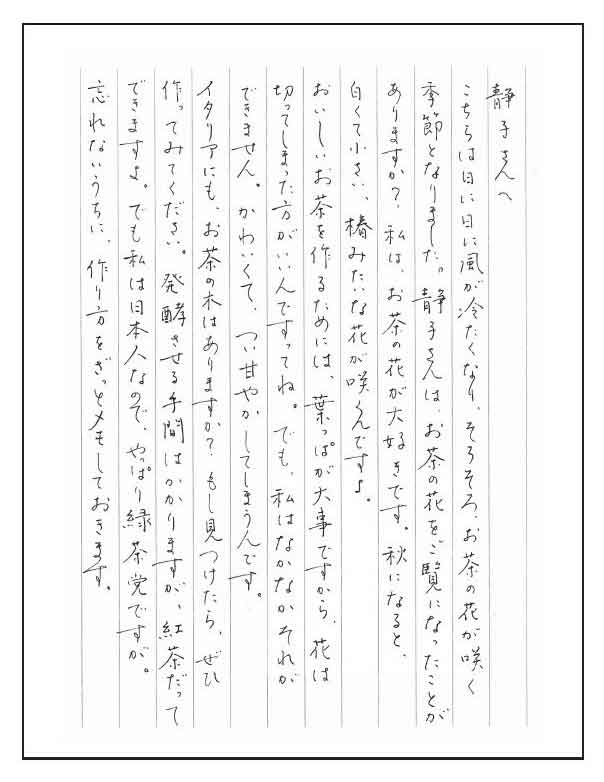 静子さんへ
こちらは日に日に風が冷たくなり、そろそろ、お茶の花が咲く
季節となりました。静子さんは、お茶の花をご覧になったことが
ありますか？私は、お茶の花が大好きです。秋になると、
白くて小さい、椿みたいな花が咲くんですよ。
おいしいお茶を作るためには、葉っぱが大事ですから、花は
切ってしまった方がいいんですってね。でも、私はなかなかそれが
できません。かわいくて、つい甘やかしてしまうんです。
イタリアにも、お茶の木はありますか？もし見つけたら、ぜひ
作ってみてください。発酵させる手間はかかりますが、紅茶だって
できますよ。でも私は日本人なので、やっぱり緑茶党ですが。
忘れないうちに、作り方をざっとメモしておきます。